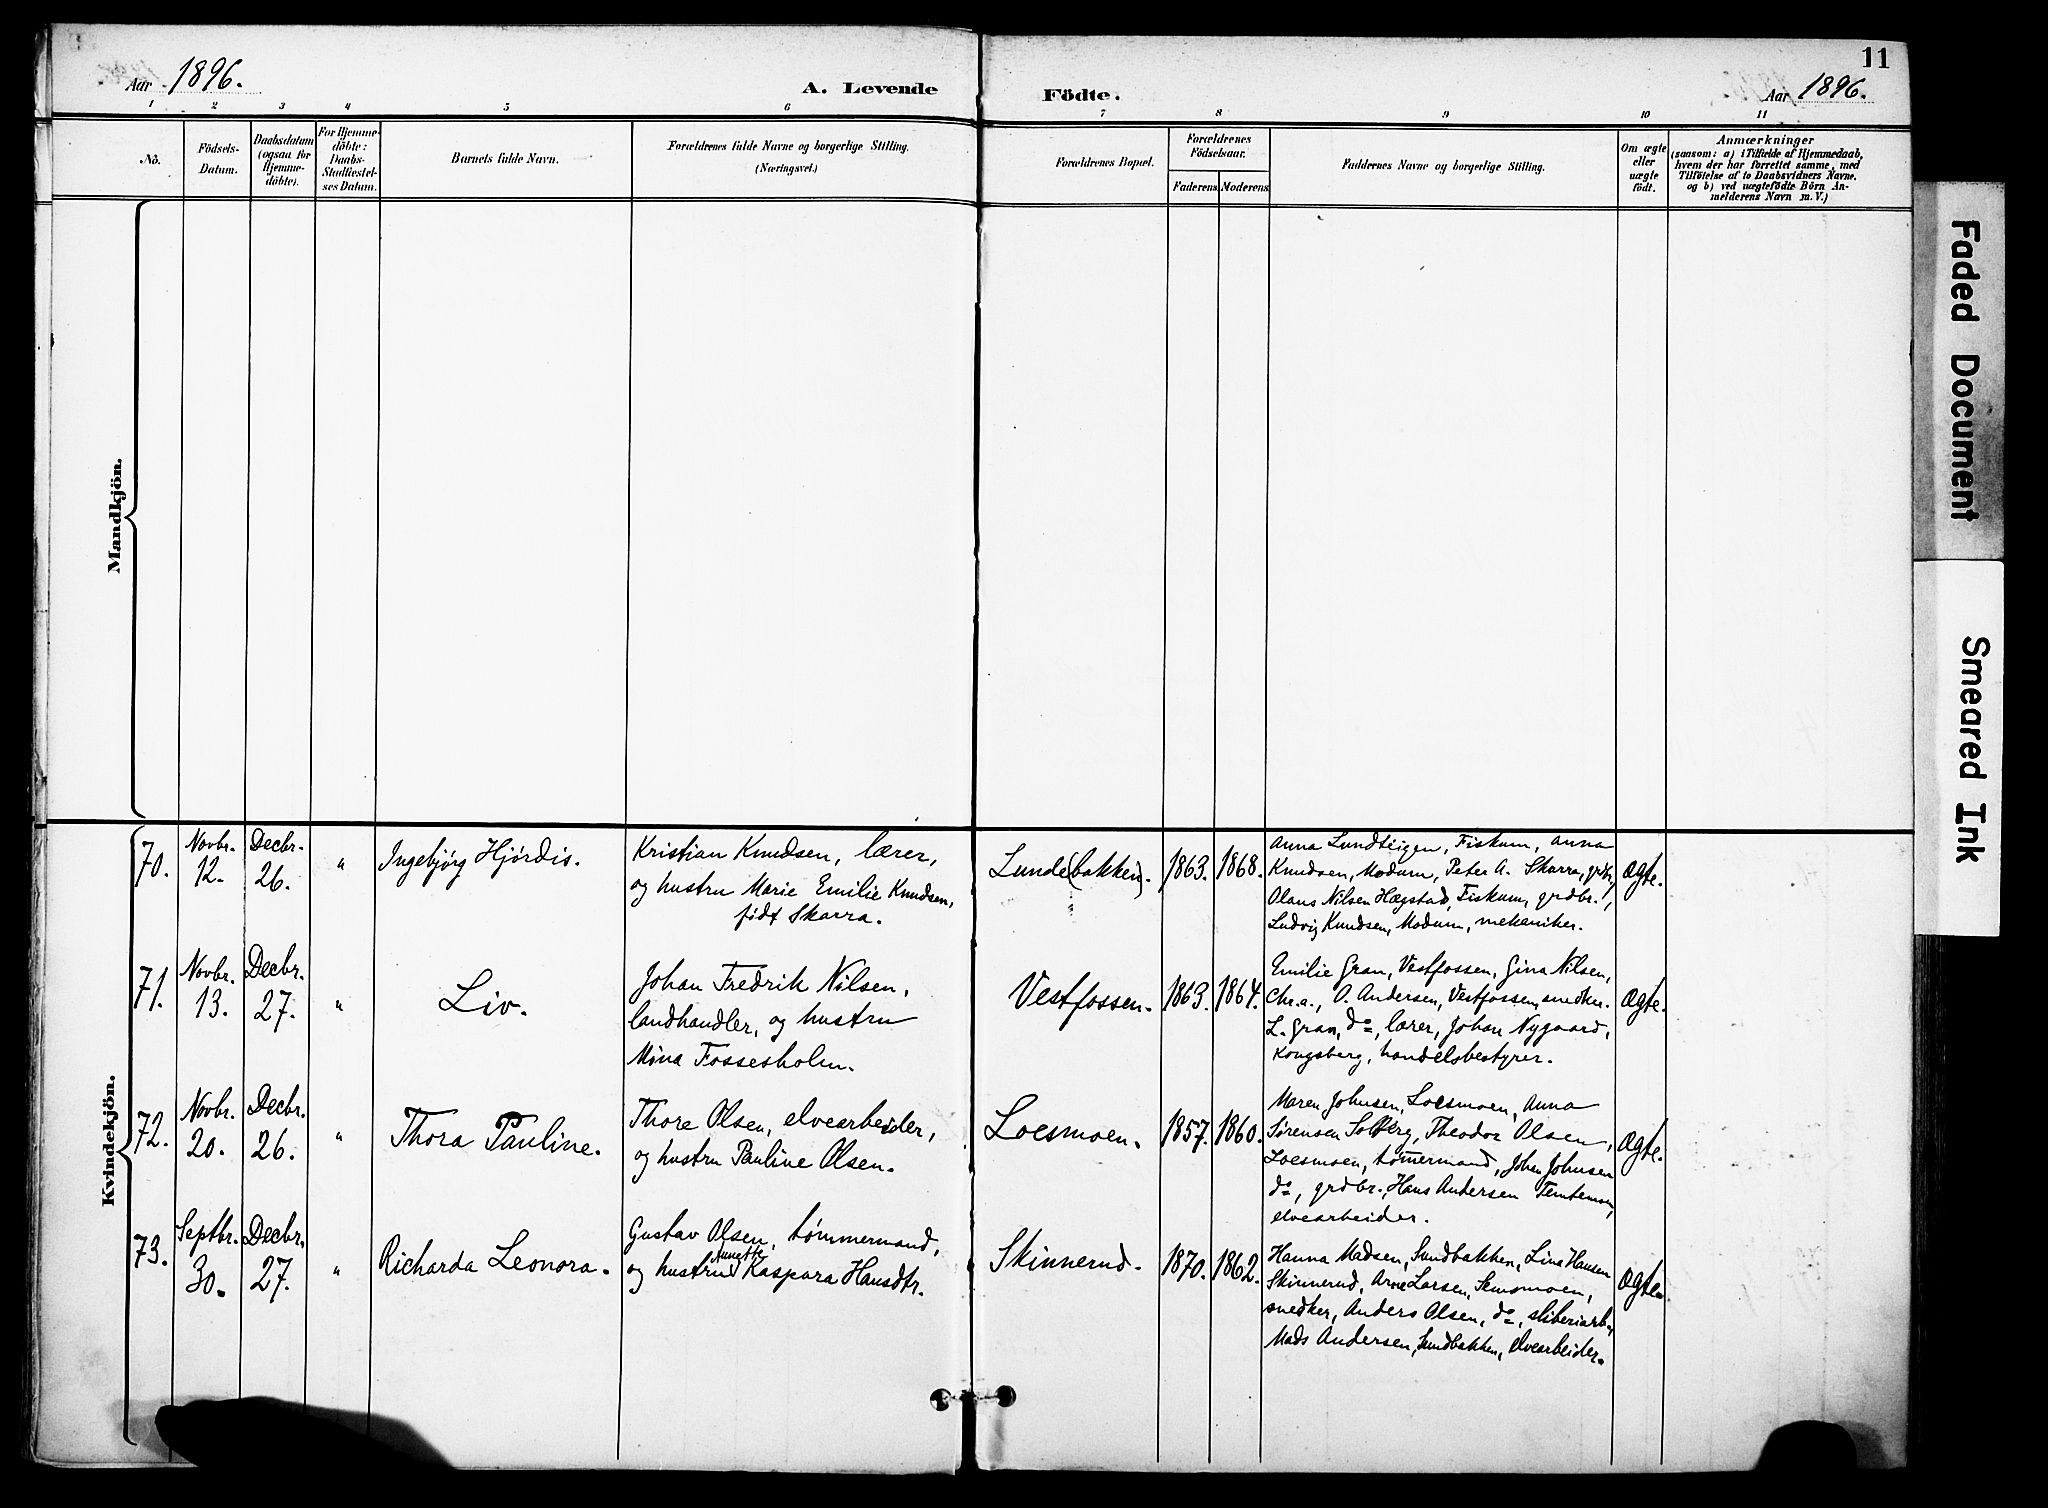 11
Aar 1896.
A. Levende
Födte.
Aar 1896.
1 2 3 4 5 6 7 8 9 10 11
No.
Födsels-
Datum.
Daabsdatum
(ogsaa for
Hjemme-
döbte).
For Hjemme-
döbte:
Daabs-
Stadfæstel-
ses Datum.
Barnets fulde Navn.
Forældrenes fulde Navne og borgerlige Stilling.
(Næringsvei.)
Forældrenes Bopæl.
Forældrenes
Födselsaar.
Faderens. Moderens.
Faddernes Navne og borgerlige Stilling.
Om ægte
eller
uægte
födt.
Anmærkninger
(saasom: a) i Tilfælde af Hjemmedaab,
hvem der har forrettet samme, med
Tilföielse af to Daabsvidners Navne,
og b) ved uægtefödte Börn An-
melderens Navn m. V.)
Mandkjön.
Kvindekjön.
70.
Novbr.
12.
Decbr.
26.
"
Ingebjørg Hjørdis.
Kristian Knudsen, lærer,
og hustru Marie Emilie Knudsen,
født Skarra.
Lunde(bakken).
1863.
1868.
Anna Lundteigen, Fiskum, Anna
Knudsen, Modum, Peter A. Skarra, grdbr.,
Olaus Nilsen Hægstad, Fiskum, grdbr.,
Ludvig Knudsen, Modum, mekaniker.
Ægte.
71.
Novbr.
13.
Decbr.
27.
"
Liv.
Johan Fredrik Nilsen,
landhandler, og hustru
Mina Fossesholm.
Vestfossen.
1863.
1864.
Emilie Gran, Vestfossen, Gina Nilsen,
Chr.a., O. Andersen, Vestfossen, snedker.
L. Gran, do, lærer, Johan Nygaard,
Kongsberg, handelsbestyrer.
Ægte.
72.
Novbr.
20.
Decbr.
26.
"
Thora Pauline.
Thore Olsen, elvearbeider,
og hustru Pauline Olsen.
Loesmoen.
1857.
1860.
Maren Johnsen, Loesmoen, Anna
Sørensen Solberg, Theodor Olsen,
Loesmoen, tømermand, John Johnsen
do, grdbr., Hans Andersen
elvearbeider.
Ægte.
73.
Septbr.
30.
Decbr.
27.
"
Richarda Leonora.
Gustav Olsen, tømmermand,
og hustru Kaspara Hansdtr.
Skinnerud.
1870.
1862.
Hanna Madsen, Sundbakken, Lina Hansen
Skinnerud, Arne Larsen, Semsmoen,
snedker, Anders Olsen, do, sliberiarb.,
Mads Andersen, Sundbakken, elvearbeider.
Ægte.
Faded Document
Smeared Ink